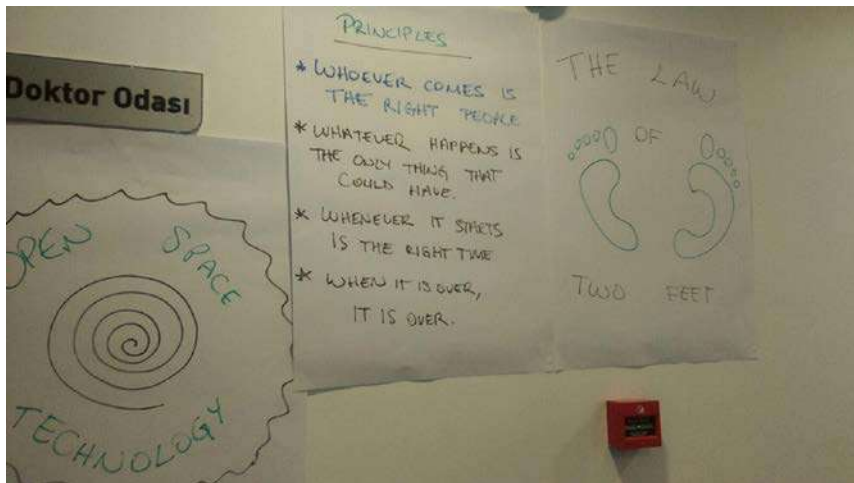 Doktor Odası
OPEN SPACE
TECHNOLOGY
PRINCIPLES
* WHOEVER COMES IS
THE RIGHT PEOPLE
* WHATEVER HAPPENS IS
THE ONLY THING THAT
COULD HAVE.
* WHENEVER IT STARTS
IS THE RIGHT TIME
* WHEN IT IS OVER,
IT IS OVER.
THE LAW
OF
TWO FEET